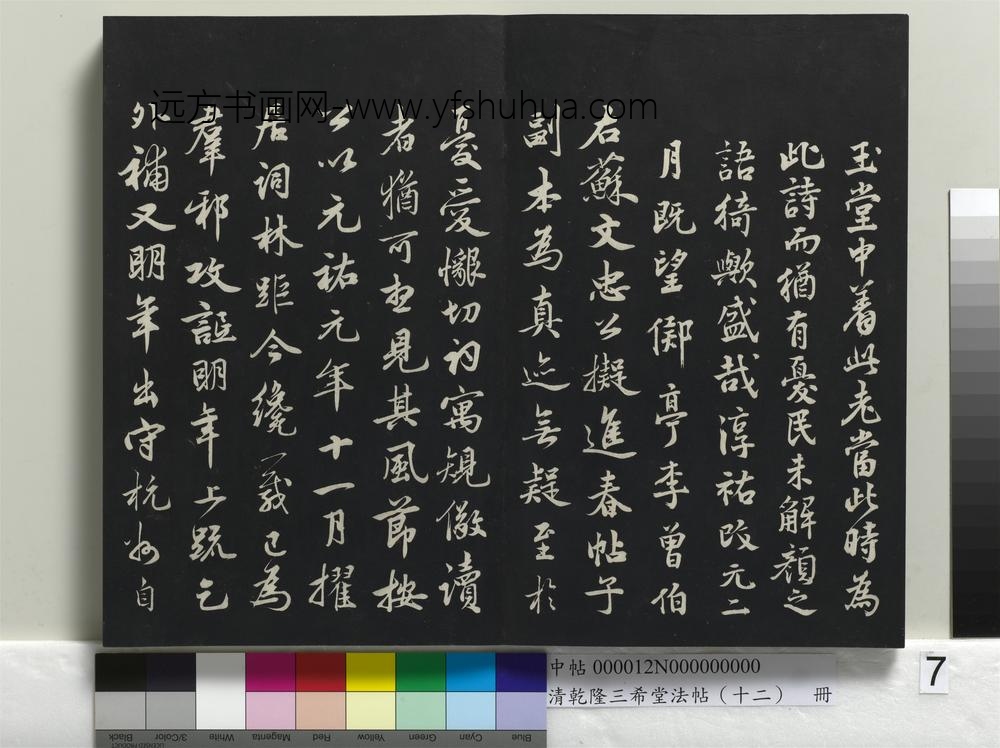 玉堂中著此老當此時為
此詩而猶有憂民未解顏之
語猗歟盛哉淳祐改元二
月既望鄊亭李曾伯
右蘇文忠公擬進春帖子
副本為真迹無疑至於
憂愛懇切詞寓規儆讀
者猶可想見其風節按
公以元祐元年十一月擢
居詞林距今纔一歲已為
羣邪攻詆明年上疏乞
外補又明年出守杭州自
远方书画网-www.yfshuhua.com
中帖 000012N000000000
清乾隆三希堂法帖（十二） 冊
7
Black
3/Color
White
Magenta
Red
Yellow
Green
Cyan
Blue